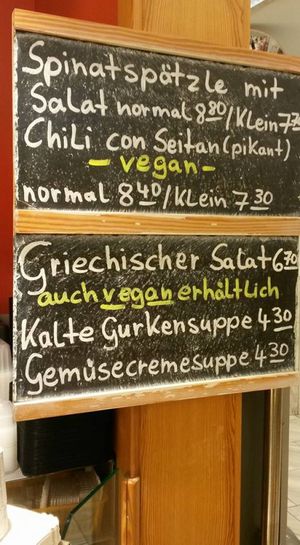 Spinatspätzle mit
Salat normal 8 80/Klein 7 70
Chili con Seitan (pikant)
- vegan -
normal 8 40/Klein 7 30
Griechischer Salat 6 70
auch vegan erhältlich
Kalte Gurkensuppe 4 30
Gemüsecremesuppe 4 30